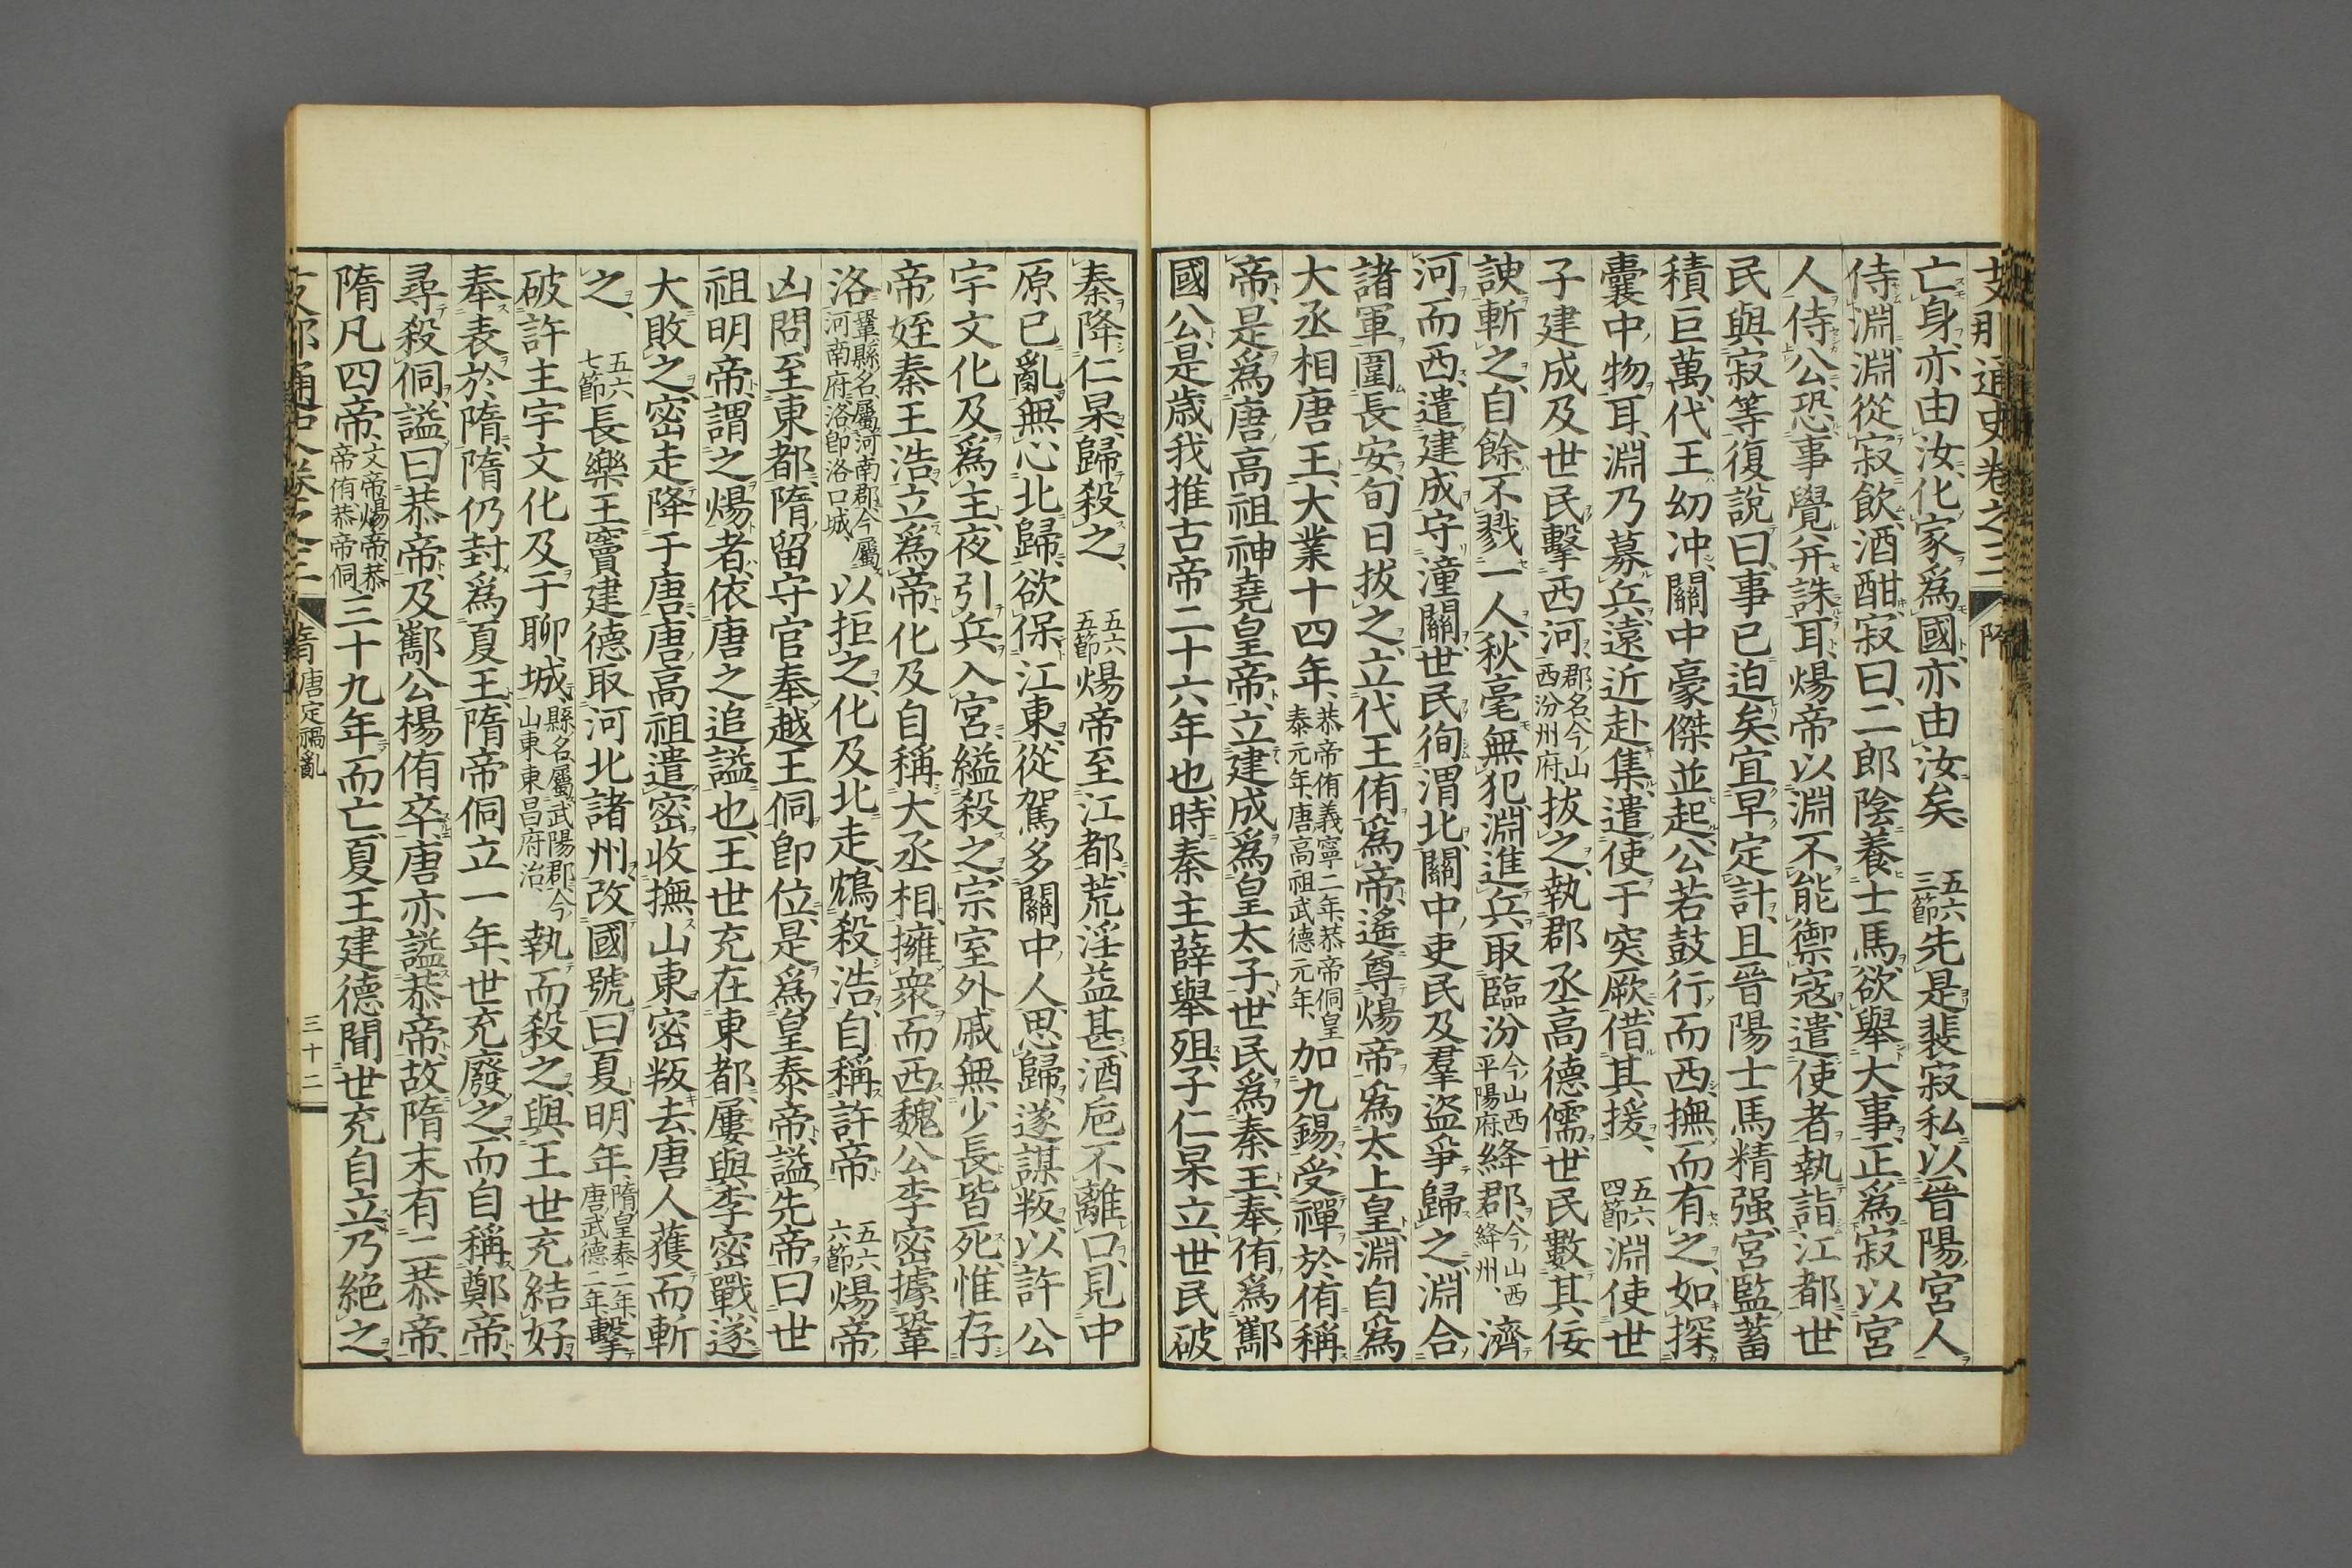 支那通史卷之三 隋
亡身亦由汝化家爲國亦由汝矣 五六三節 先是裴寂私以晉陽宮人
侍淵淵從寂飲酒酣寂曰二郎陰養士馬欲舉大事正爲寂以宮
人侍公恐事覺并誅耳煬帝以淵不能禦寇遣使者執詣江都世
民與寂等復説曰事已迫矣宜早定計且晉陽士馬精强宮監蓄
積巨萬代王幼冲關中豪傑並起公若鼓行而西撫而有之如探
囊中物耳淵乃募兵遠近赴集遣使于突厥借其援 五六四節 淵使世
子建成及世民擊西河 郡名今山西汾州府 拔之執郡丞高德儒世民數其佞
諛斬之自餘不戮一人秋毫無犯淵進兵取臨汾 今山西平陽府 絳郡 今山西絳州 濟
河而西遣建成守潼關世民徇渭北關中吏民及羣盜爭歸之淵合
諸軍圍長安旬日拔之立代王侑爲帝遙尊煬帝爲太上皇淵自爲
大丞相唐王大業十四年 恭帝侑義寧二年恭帝侗皇泰元年唐高祖武德元年 加九錫受禪於侑稱
帝是爲唐高祖神堯皇帝立建成爲皇太子世民爲秦王奉侑爲酅
國公是歲我推古帝二十六年也時秦主薛舉殂子仁杲立世民破
秦降仁杲歸殺之 五六五節 煬帝至江都荒淫益甚酒巵不離口見中
原已亂無心北歸欲保江東從駕多關中人思歸遂謀叛以許公
宇文化及爲主夜引兵入宮縊殺之宗室外戚無少長皆死惟存
帝姪秦王浩立爲帝化及自稱大丞相擁衆而西魏公李密據鞏
洛 鞏縣名屬河南郡今屬河南府洛卽洛口城 以拒之化及北走鴆殺浩自稱許帝 五六六節 煬帝
凶問至東都隋留守官奉越王侗卽位是爲皇泰帝謚先帝曰世
祖明帝謂之煬者依唐之追謚也王世充在東都屢與李密戰遂
大敗之密走降于唐唐高祖遣密收撫山東密叛去唐人獲而斬
之 五六七節 長樂王竇建德取河北諸州改國號曰夏明年 隋皇泰二年唐武德二年 擊
破許主宇文化及于聊城 縣名屬武陽郡今山東東昌府治 執而殺之與王世充結好
奉表於隋隋仍封爲夏王隋帝侗立一年世充廢之而自稱鄭帝
尋殺侗謚曰恭帝及酅公楊侑卒唐亦謚恭帝故隋末有二恭帝
隋凡四帝 文帝煬帝恭帝侑恭帝侗 三十九年而亡夏王建德聞世充自立乃絕之
支那通史卷之三 隋 唐定禍亂 三十二